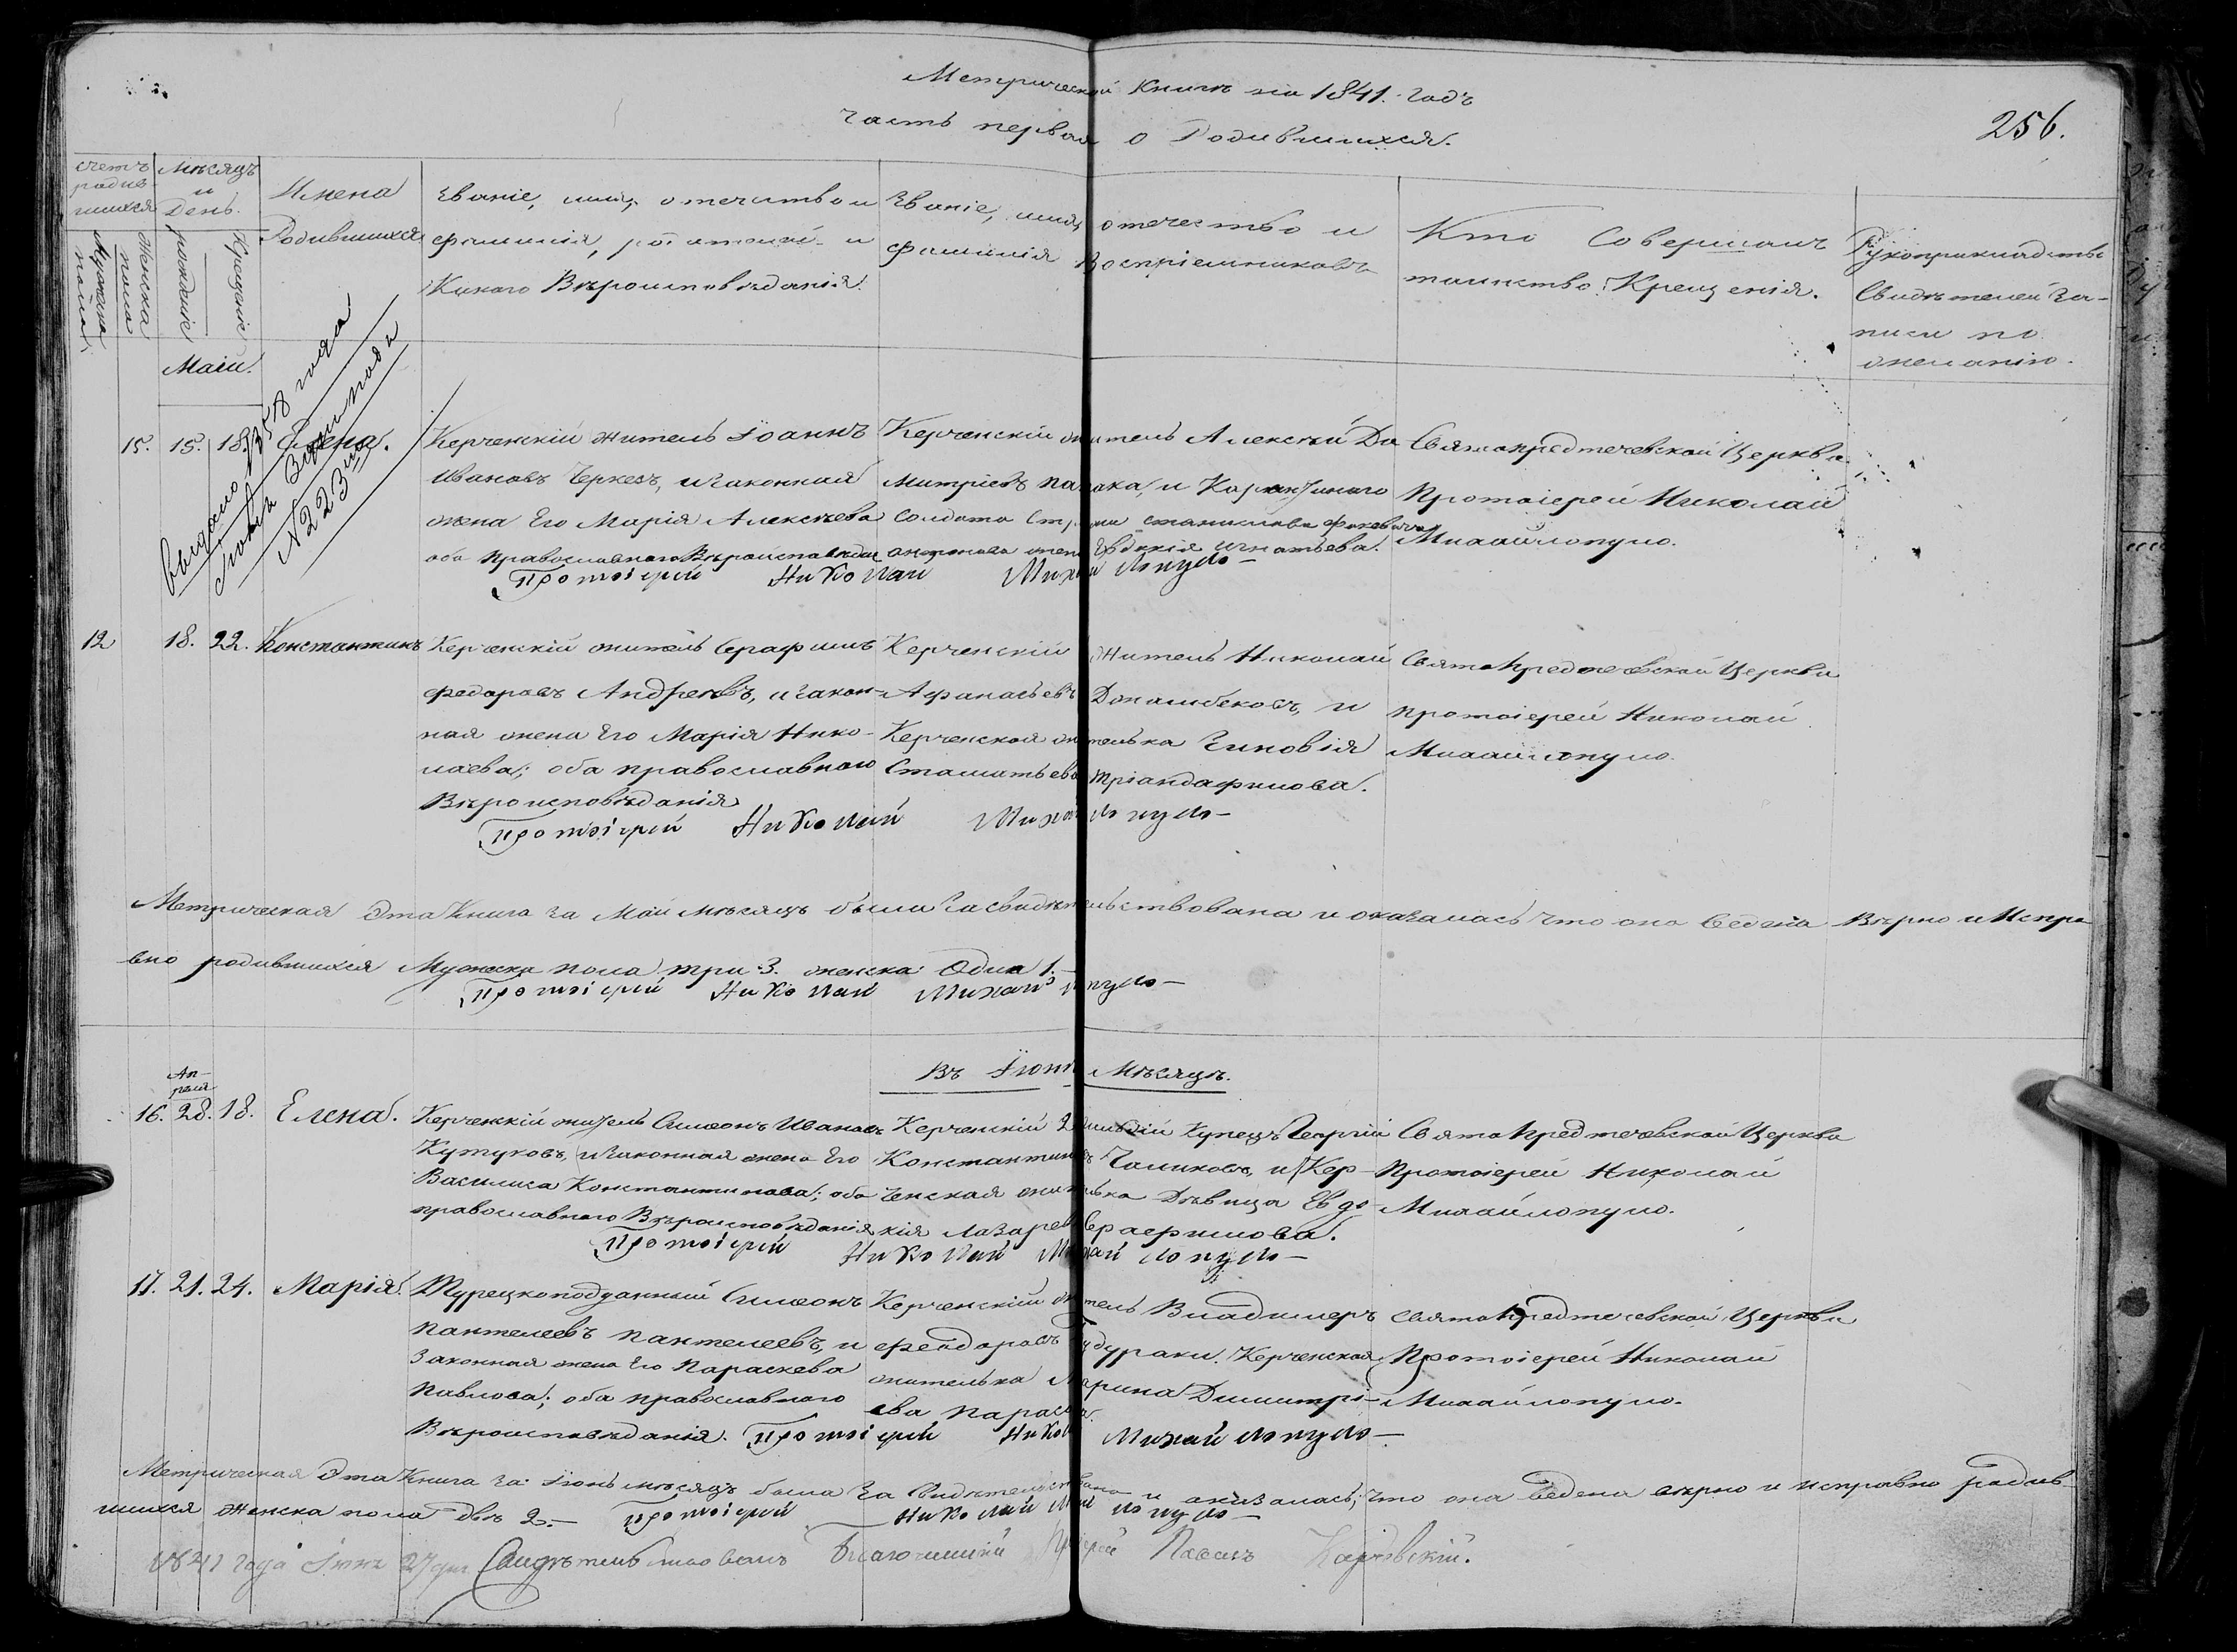 Метрической Книги на 1841. Годъ
часть первая о Родившихся.
256.
счетъ родив-шихся
Мѣсяцъ и День.
Имена Родившихся
Званіе, имя, отечество и фамилія, родителей и Какого Вѣроисповѣданія.
Званіе, имя, отечество и фамилія Воспріемниковъ
Кто Совершалъ таинство Крещенія.
Рукоприкладство Свидѣтелей За-писи по желанію.
Мужеска пола
Женска пола
рожденіе
Крещеніе
Маіи.
Выдано 1858 года
№ 223
15. 15. 18. Елена.
Керченскій житель Іоаннъ
Ивановъ Черкезъ, и законная
жена Его Марія Алексѣева
оба православнаго Вѣроисповѣдан
Керченскій житель Алексѣй Ди
митріевъ и Карантиннаго
Солдата
жена Евдокія Игнатьева.
Святопредтечевской Церкви
Протоіерей Николай
Михайлопуло.
Протоіерей Николай Михайлопуло
12 18. 22. Константинъ
Керченскій житель Серафимъ
Федоровъ Андреевъ, и закон-
ная жена Его Марія Нико-
лаева; оба православнаго
Вѣроисповѣданія
Керченскій Житель Николай
Афанасьевъ Дональбековъ, и
Керченская жителька Зиновія
Стаматьева Тріандафилова.
СвятоПредтечевской Церкви
протоіерей Николай
Михайлопуло.
Протоіерей Николай Михайлопуло
Метрическая Эта Книга за Май мѣсяцъ была Засвидѣтельствована и оказалась что она Ведена Вѣрно и Испра
вно родившихся Мужеска пола три 3. женска Одна 1.
Протоіерей Николай Михайлопуло
Въ Іюнѣ Мѣсяцѣ.
Ап-
реля
16. 28. 18. Елена.
Керченскій житель Симеонъ Ивановъ
Кутуковъ, и законная жена Его
Василиса Константинова; оба
православнаго Вѣроисповѣданія
Керченскій 2 Гильдіи Купецъ Георгій
Константиновъ Чаликовъ, и Кер-
ченская жителька Дѣвица Евдо-
кія Лазарева Серафимова.
СвятоПредтечевской Церкви
Протоіерей Николай
Михайлопуло.
Протоіерей Николай Михайлопуло
17. 21. 24. Марія.
Турецкоподданный Симеонъ
Пантелеевъ Пантелеевъ, и
Законная жена Его Параскева
Павлова; оба православнаго
Вѣроисповѣданія.
Керченскій житель Владимеръ
Феодоровъ Керченская
жителька Марина Димитрі-
ева
СвятоПредтечевской Церкви
Протоіерей Николай
Михайлопуло.
Протоіерей Николай Михайлопуло
Метрическая Эта Книга За Іюнь мѣсяцъ была Засвидѣтельствована и оказалась, что она Ведена вѣрно и исправно родив-
шихся Женска пола двѣ 2. Протоіерей Николай Михайлопуло
1841 года Іюня 27 дня Свидѣтельствовалъ Благочинный Іерей Павелъ